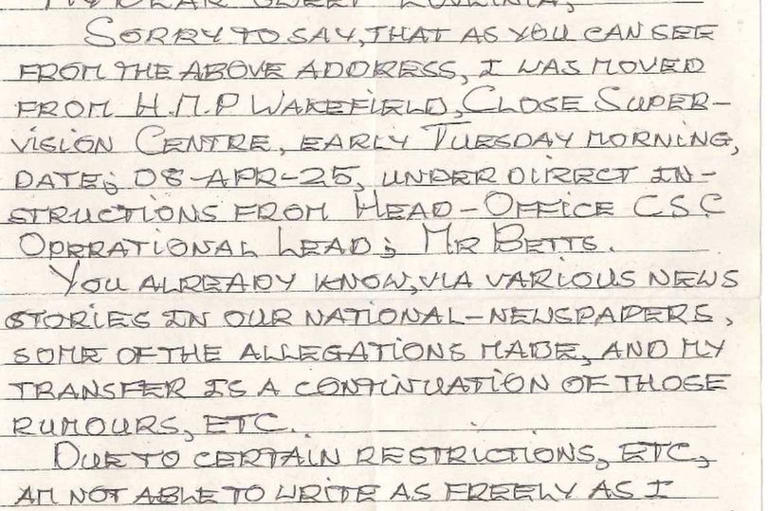 MY DEAR SWEET LOVINIA,
SORRY TO SAY, THAT AS YOU CAN SEE
FROM THE ABOVE ADDRESS, I WAS MOVED
FROM H.M.P WAKEFIELD, CLOSE SUPER-
VISION CENTRE, EARLY TUESDAY MORNING,
DATE; 08-APR-25, UNDER DIRECT IN-
STRUCTIONS FROM HEAD-OFFICE C S C
OPERRATIONAL LEAD; MR BETTS.
YOU ALREADY KNOW, VIA VARIOUS NEWS
STORIES IN OUR NATIONAL-NEWSPAPERS,
SOME OF THE ALLEGATIONS MADE, AND MY
TRANSFER IS A CONTINUATION OF THOSE
RUMOURS, ETC.
DUE TO CERTAIN RESTRICTIONS, ETC,
AM NOT ABLE TO WRITE AS FREELY AS I